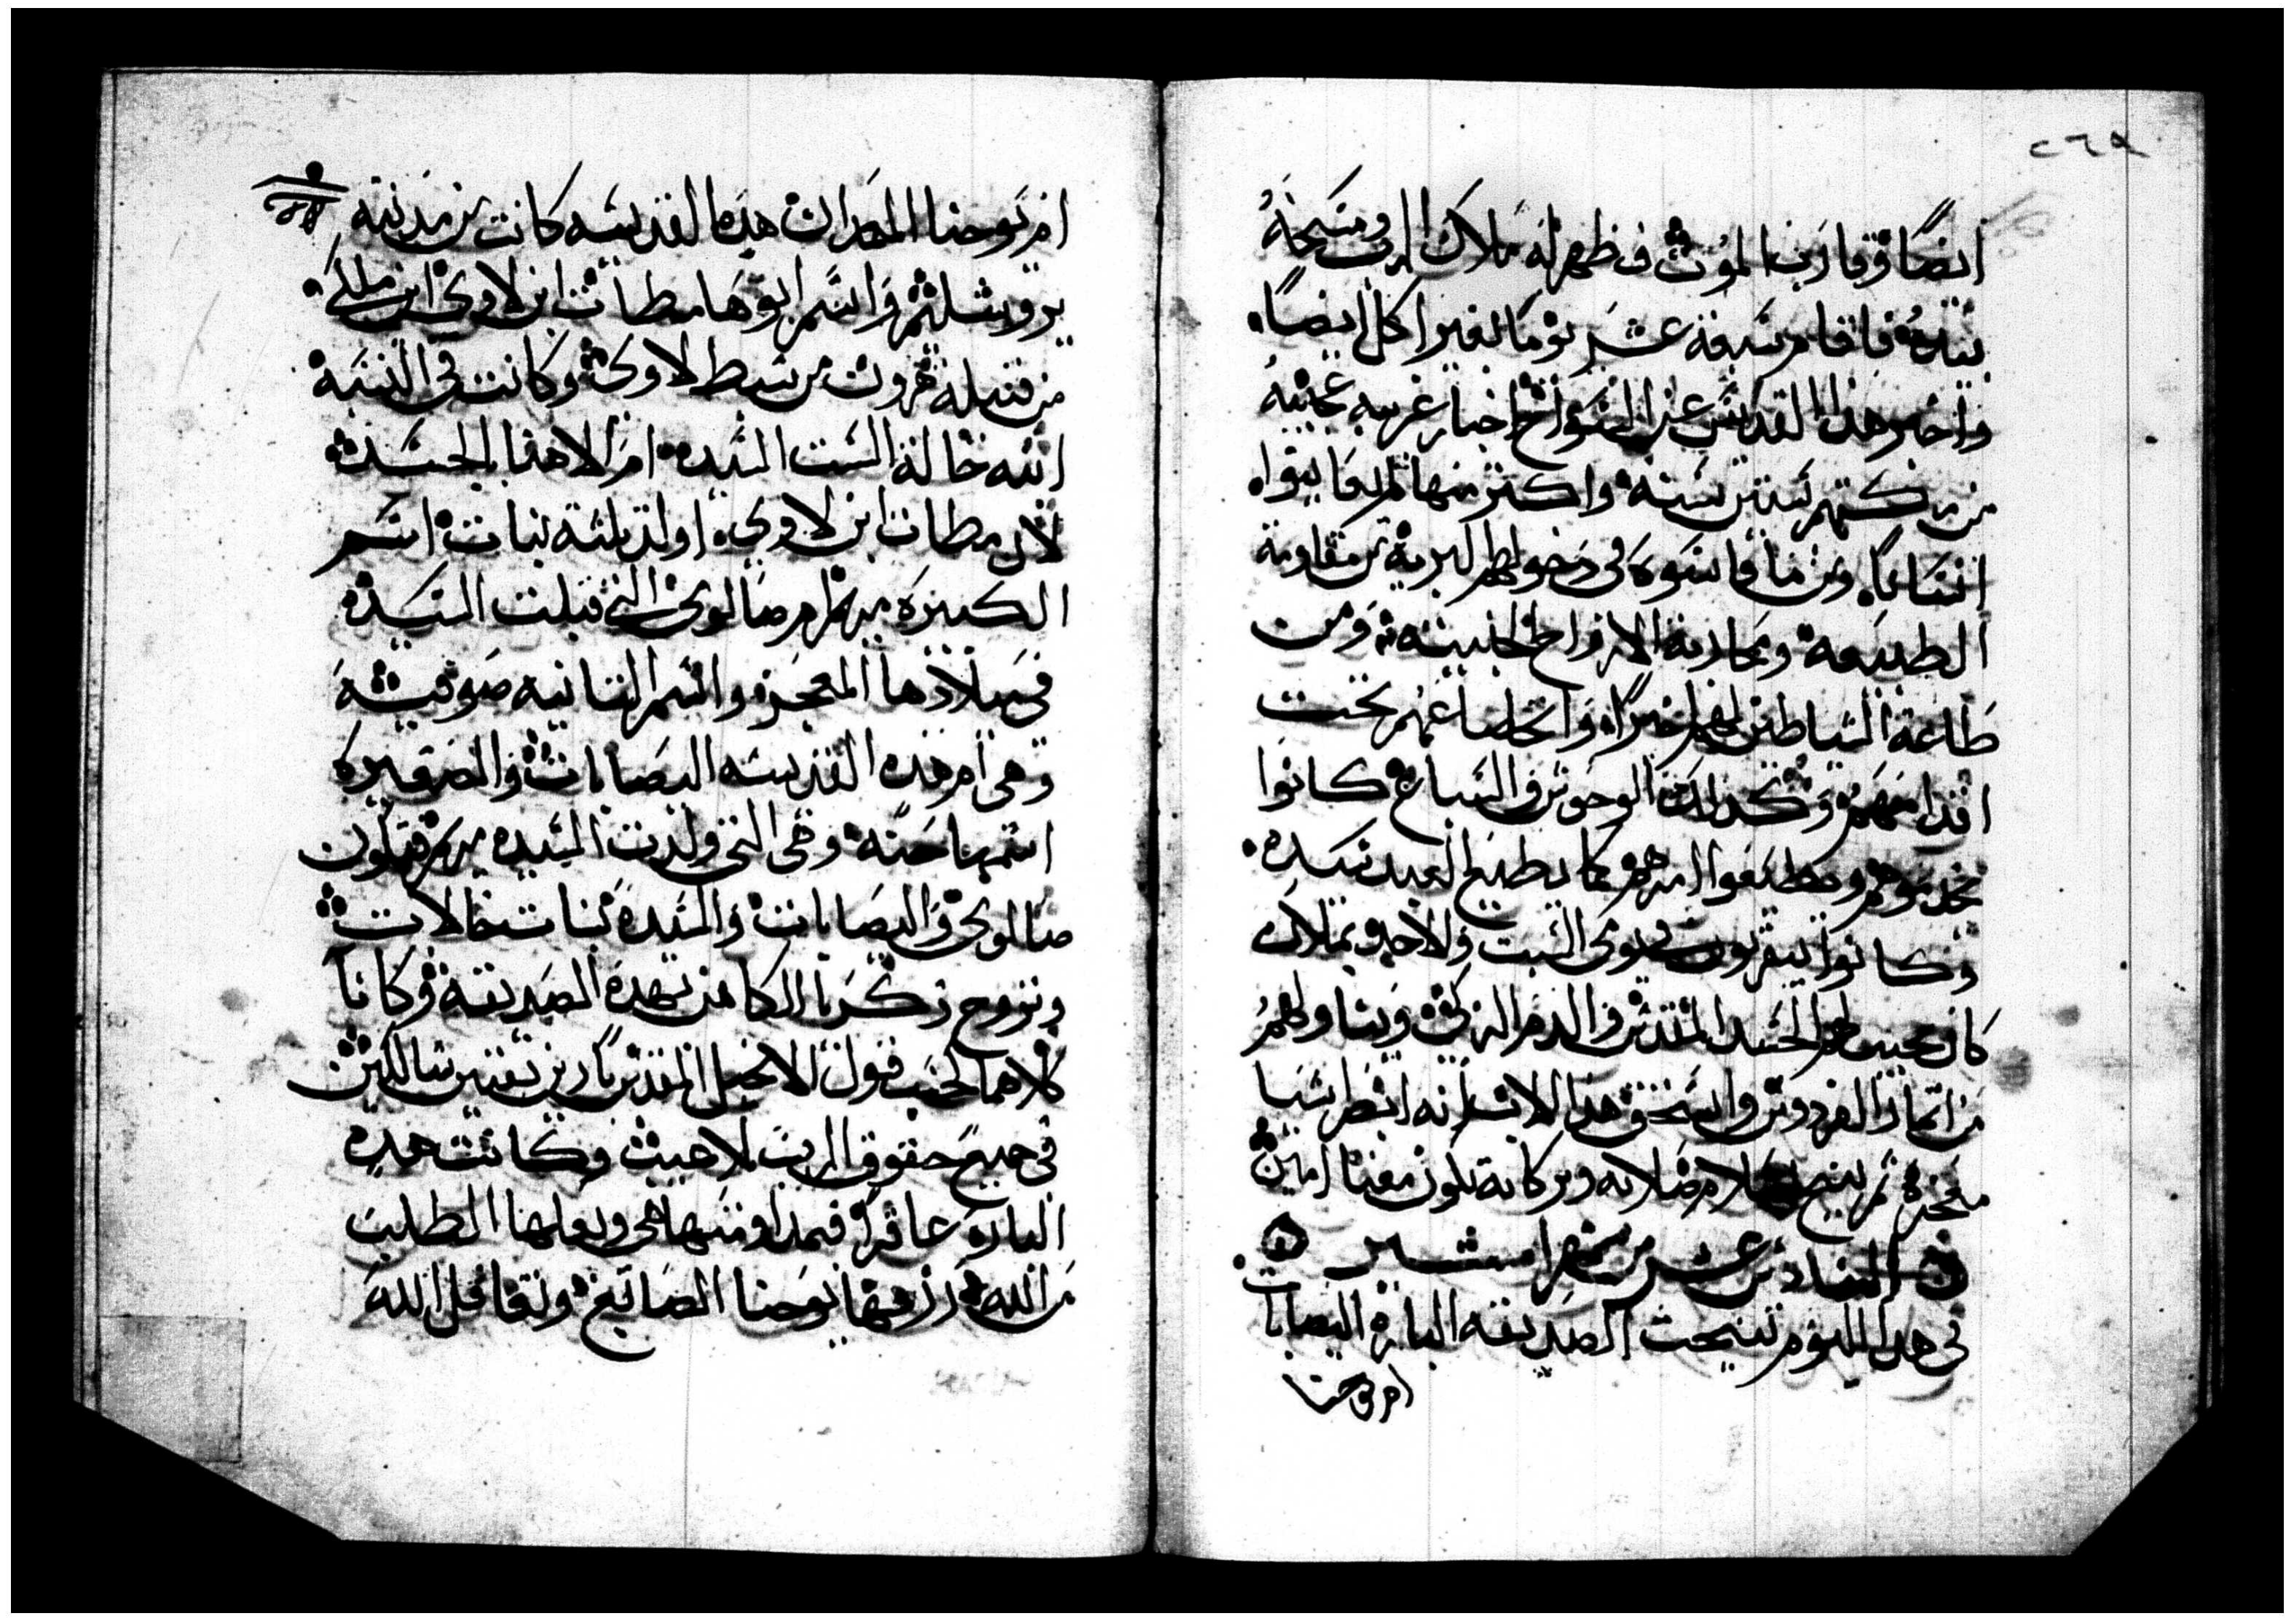 ٢٦٩
ايضًا وقارب الموت فظهر له ملاك الرب ومسحه
بيده فاقام سبعة عشر يومًا بغير اكل ايضًا
واخبر هذا القديس عن السواح اخبار غريبه عجيبه
من مكثهم ستين سنه واكثر منها لم يعاينوا
انسانًا ومن ما قاسوه في دخولهم البرية من مقاومة
الطبيعه ومحاربة الارواح الخبيثه ومن
طاعة الشياطين لهم اخيرًا واتخاضاعهم تحت
اقدامهم وكذالك الوحوش والسباع كانوا
يخدموهم ويطيعوا امرهم كما يطيع العبد سيده
وكانوا يتقربون في يومى السبت والاحد وملاك
كان يجيب لهم الجسد المقدس والدم الزكى ويناولهم
من اثمار الفردوس واستحق هذا الاب انه ابضر اشيا
معجزة ثم تنيح بسلام صلاته وبركاته تكون معنا امين
السادس عشر من شهر امشير
في هذا اليوم تنيحت الصديقه الباره اليصابات
ام يوحنا
ام يوحنا المعمدان هذه القديسه كانت من مدينة
يروشليم واسم ابوها مطاث ابن لاوى ابن ملكي
من قبيلة هرون من سبط لاوى وكانت في النسبه
ابنه خالة الست السيده ام الاهنا بالجسد
لان مطات ابن لاوى اولد ثلثة بنات اسم
الكبيره مريم ام صالومى التي قبلت السيده
في ميلادها المعجز واسم الثانيه صوفيه
وهي ام هذه القديسه اليصابات والصغيره
اسمها حنه وهي التي ولدت السيده مريم فتكون
صالومى واليصابات والسيده بنات خالات
وتزوج زكريا الكاهن بهذه الصديقه وكانا
كلاهما كحسب قول الانجيل المقدس بارين تقيين سالكين
في جميع حقوق الرب بلا عيب وكانت هذه
الباره عاقرًا فبمداومتها هي وبعلها الطلبه
من الله رزقهما يوحنا الصابغ وتغافل الله